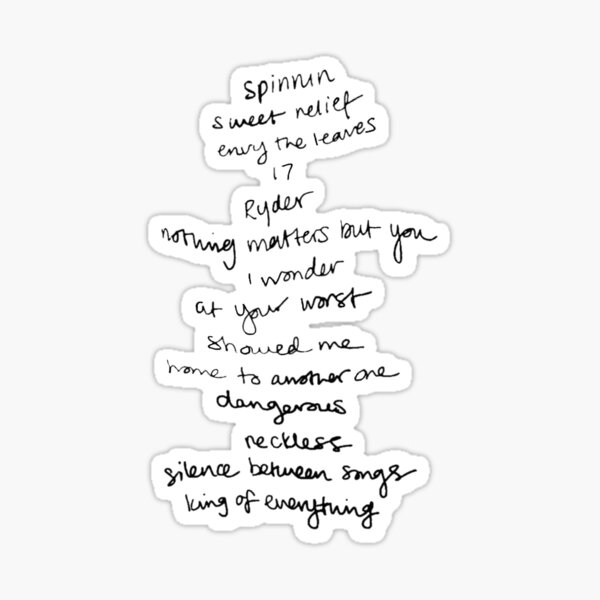 spinnin
sweet relief
envy the leaves
17
Ryder
nothing matters but you
I wonder
at your worst
showed me
home to another one
dangerous
reckless
silence between songs
king of everything